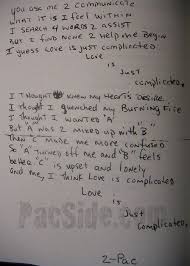 you ask me 2 communicate
what it is I feel within
I search 4 words 2 assist
But I find none 2 help me begin
I guess love is just complicated
Love
is
Just
complicated,
I thought I knew my heart's desire
I thought I quenched my Burning Fire
I thought I wanted "A"
But A was 2 mixed up with "B"
Then C made me more confused
So "A" turned off me and "B" feels
betta "C" is upset and lonely
and me, I think Love is complicated
Love
is
Just
complicated,
PacSide.com
2-Pac